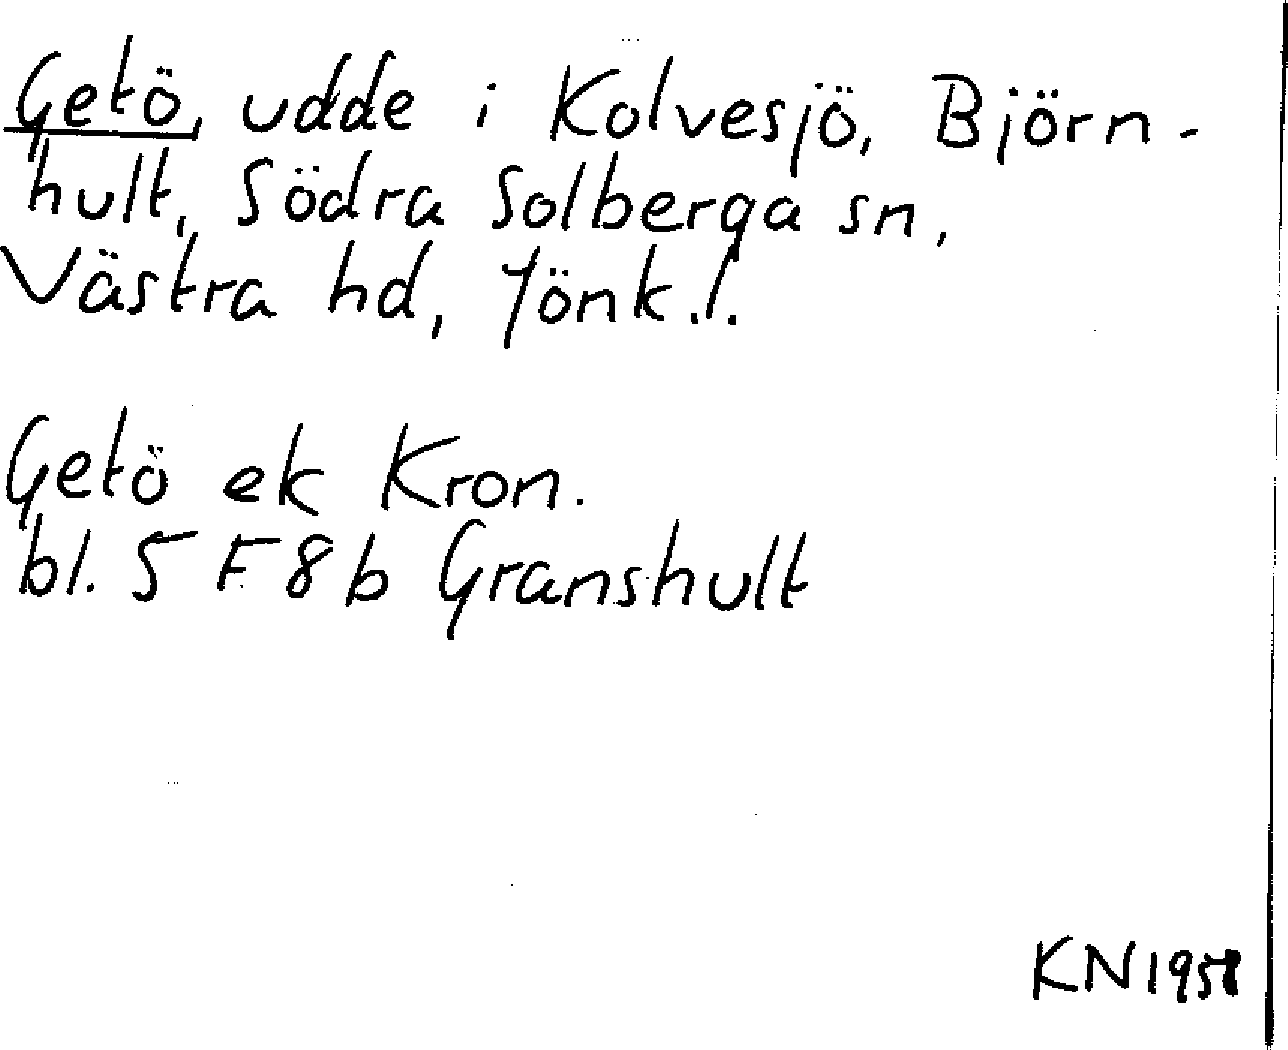 Getö, udde i Kolvesjö, Björn-
hult, Södra Solberga sn,
Västra hd, Jönk.l.
Getö ek Kron.
bl. 5 F 8 b Granshult
KN 1958